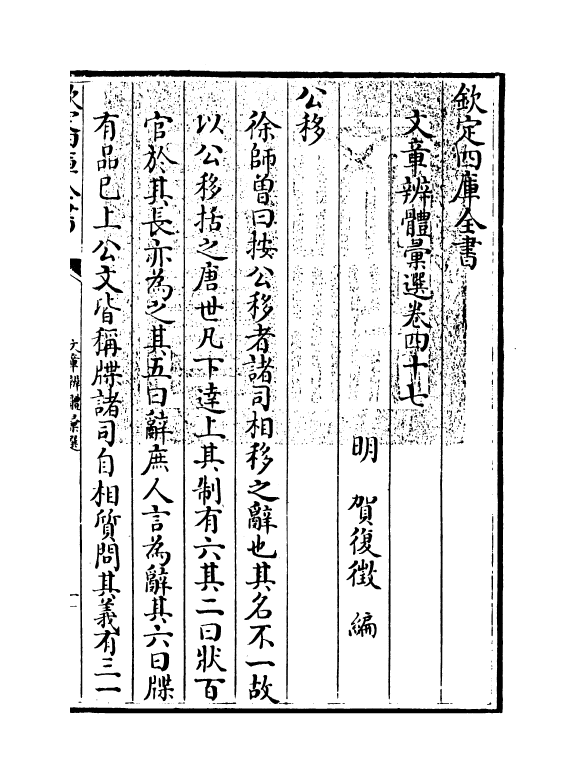 欽定四庫全書
文章辨體彙選卷四十七
明　賀復徵　編
公移
徐師曾曰按公移者諸司相移之辭也其名不一故
以公移括之唐世凡下逹上其制有六其二曰狀百
官於其長亦為之其五曰辭庶人言為辭其六曰牒
有品已上公文皆稱牒諸司自相質問其義有三一
文章辨體彙選